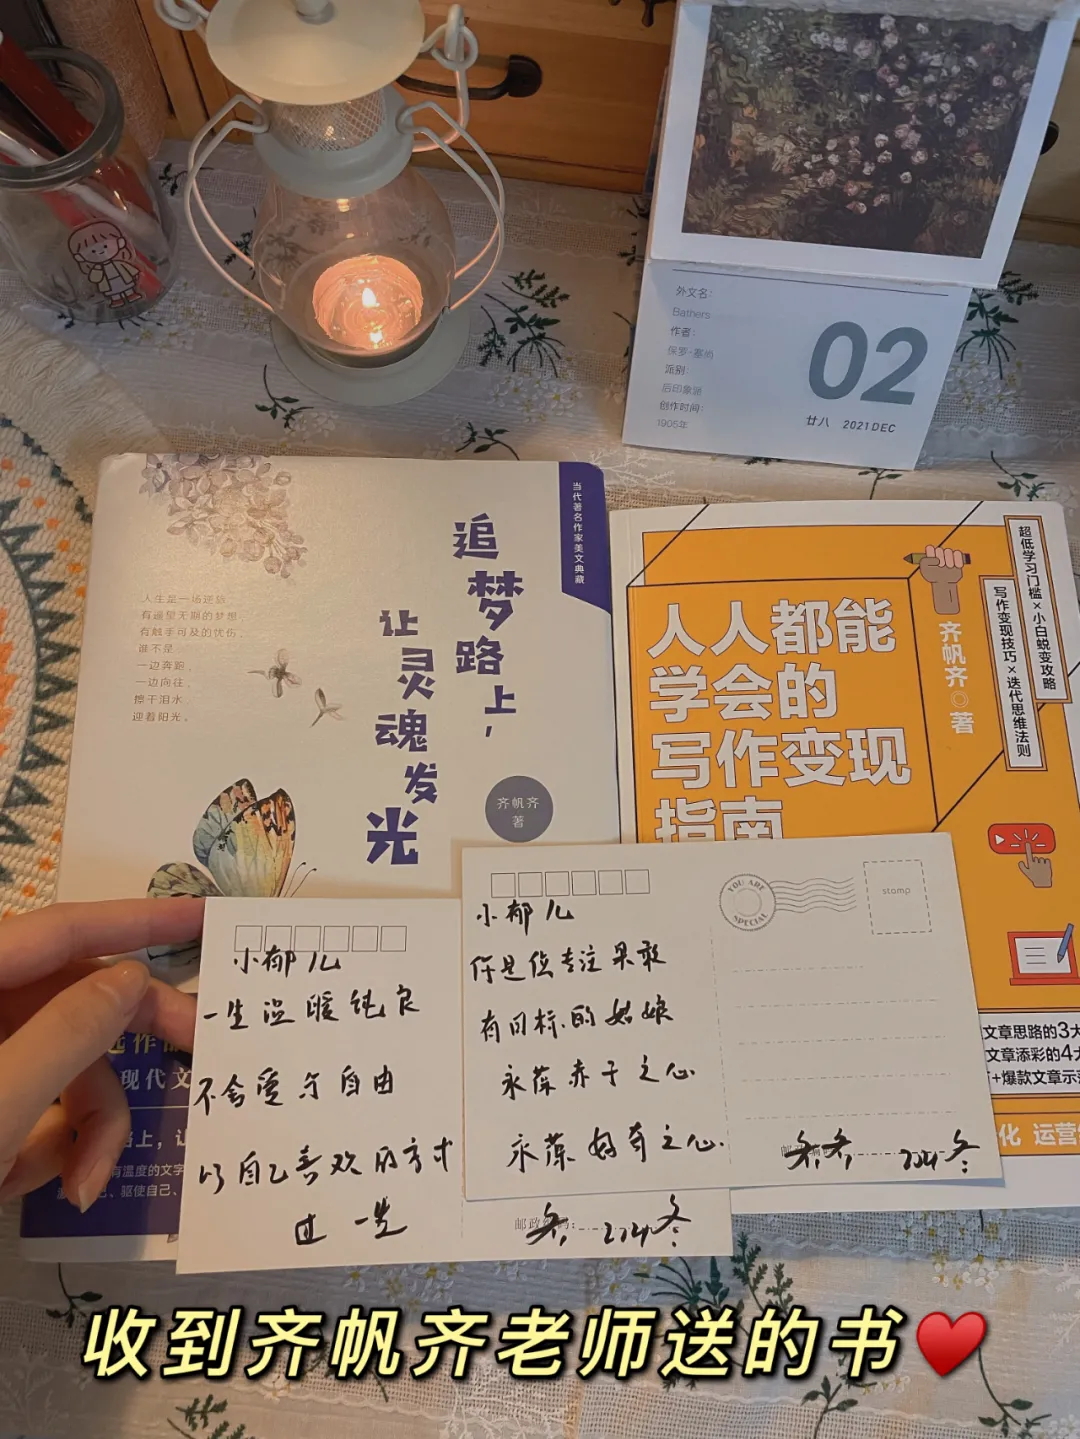 外文名：
Bathers
作者：
保罗·塞尚
派别：
后印象派
创作时间：
1905年
02
廿八 2021 DEC
当代著名作家美文典藏
追梦路上，
让灵魂发光
齐帆齐
著
人生是一场逆旅，
有遥望无期的梦想，
有触手可及的忧伤。
谁不是
一边奔跑，
一边向往，
擦干泪水，
迎着阳光。
现代文
有温度的文字
超低学习门槛×小白蜕变攻略
写作变现技巧×迭代思维法则
人人都能
学会的
写作变现
指南
齐帆齐◎著
文章思路的3大
文章添彩的4大
+爆款文章示
化 运营
小郁儿
一生温暖纯良
不舍爱与自由
以自己喜欢的方式
过一生
邮政
2021冬
小郁儿
你是位专注果敢
有目标的姑娘
永葆赤子之心
永葆好奇之心.
2021冬
YOU ARE
SPECIAL
stamp
收到齐帆齐老师送的书